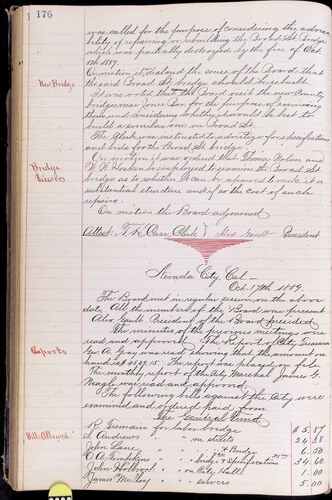 176
was called for the purpose of considering the advisa-
bility of repairing or rebuilding the Broad St. bridge
which was partially destroyed by the fire of Oct.
8th 1889.
New Bridge
On motion it was the sense of the Board that
the said Broad St. bridge should be rebuilt.
It was voted that the Board visit the new County
bridge near Jones Bar for the purpose of examining
them and considering whether it would be best to
build a similar one on Broad St.
The Clerk was instructed to advertise for specifications
and bids for the Broad St. bridge
Bridge
On motion it was ordered that Thomas Nolan and
W. H. be employed to examine the Broad St.
bridge as to whether it can be repaired to make it a
substantial structure and if so the cost of such
repairs.
On motion the Board adjourned
Attest T. H. Carr Clerk } Alex Gault President
Nevada City, Cal.
Oct. 17th 1889.
The Board met in regular session on the above
date. All the members of the Board were present
Alex Gault President of the Board presided.
The minutes of the previous meetings were
read and approved. The Report of City Treasurer
Reports
Geo. A. Gray was read showing that the amount on
hand is The report was placed on file.
The monthly report of the City Marshal James G.
was read and approved.
The following bills against the City were
examined and ordered paid from
The General Fund
Bills Allowed
R. Germain for labor bridge $ 5.87
S. Andrews " on streets 24.38
John Lane " " " & Bridge 6.50
C. A. Tompkins " bridge & Specifications 34.60
John " on City Hall 1.00
James " sewers 5.00